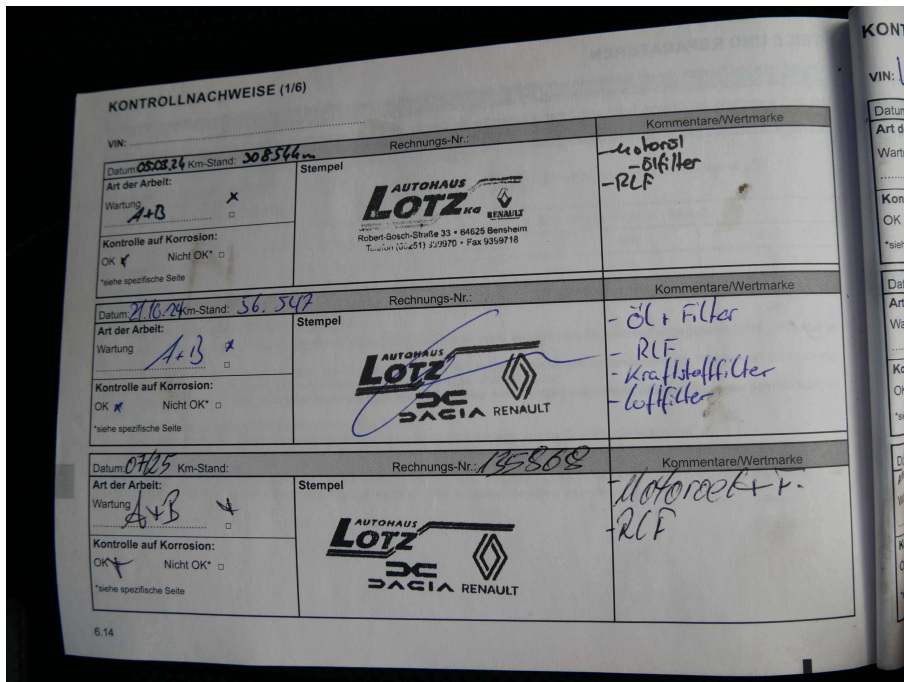 KONTROLLNACHWEISE (1/6)
VIN:
Datum: 05.08.24 Km-Stand: 30854km
Rechnungs-Nr.:
Kommentare/Wertmarke
Art der Arbeit:
Wartung
A+B
Kontrolle auf Korrosion:
OK x Nicht OK* □
*siehe spezifische Seite
Stempel
AUTOHAUS
LOTZ KG
RENAULT
Robert-Bosch-Straße 33 • 64625 Bensheim
Telefon (06251) 939970 • Fax 9399718
- Motoröl
- Ölfilter
- RLF
Datum: 21.10.24 Km-Stand: 56.547
Rechnungs-Nr.:
Kommentare/Wertmarke
Art der Arbeit:
Wartung
A+B
Kontrolle auf Korrosion:
OK x Nicht OK* □
*siehe spezifische Seite
Stempel
AUTOHAUS
LOTZ
DACIA RENAULT
- Öl + Filter
- RLF
- Kraftstofffilter
- Luftfilter
Datum: 07/25 Km-Stand:
Rechnungs-Nr.: 135868
Kommentare/Wertmarke
Art der Arbeit:
Wartung
A+B
Kontrolle auf Korrosion:
OK x Nicht OK* □
*siehe spezifische Seite
Stempel
AUTOHAUS
LOTZ
DACIA RENAULT
- Motoroel + F.
- RLF
6.14
KONT
VIN: